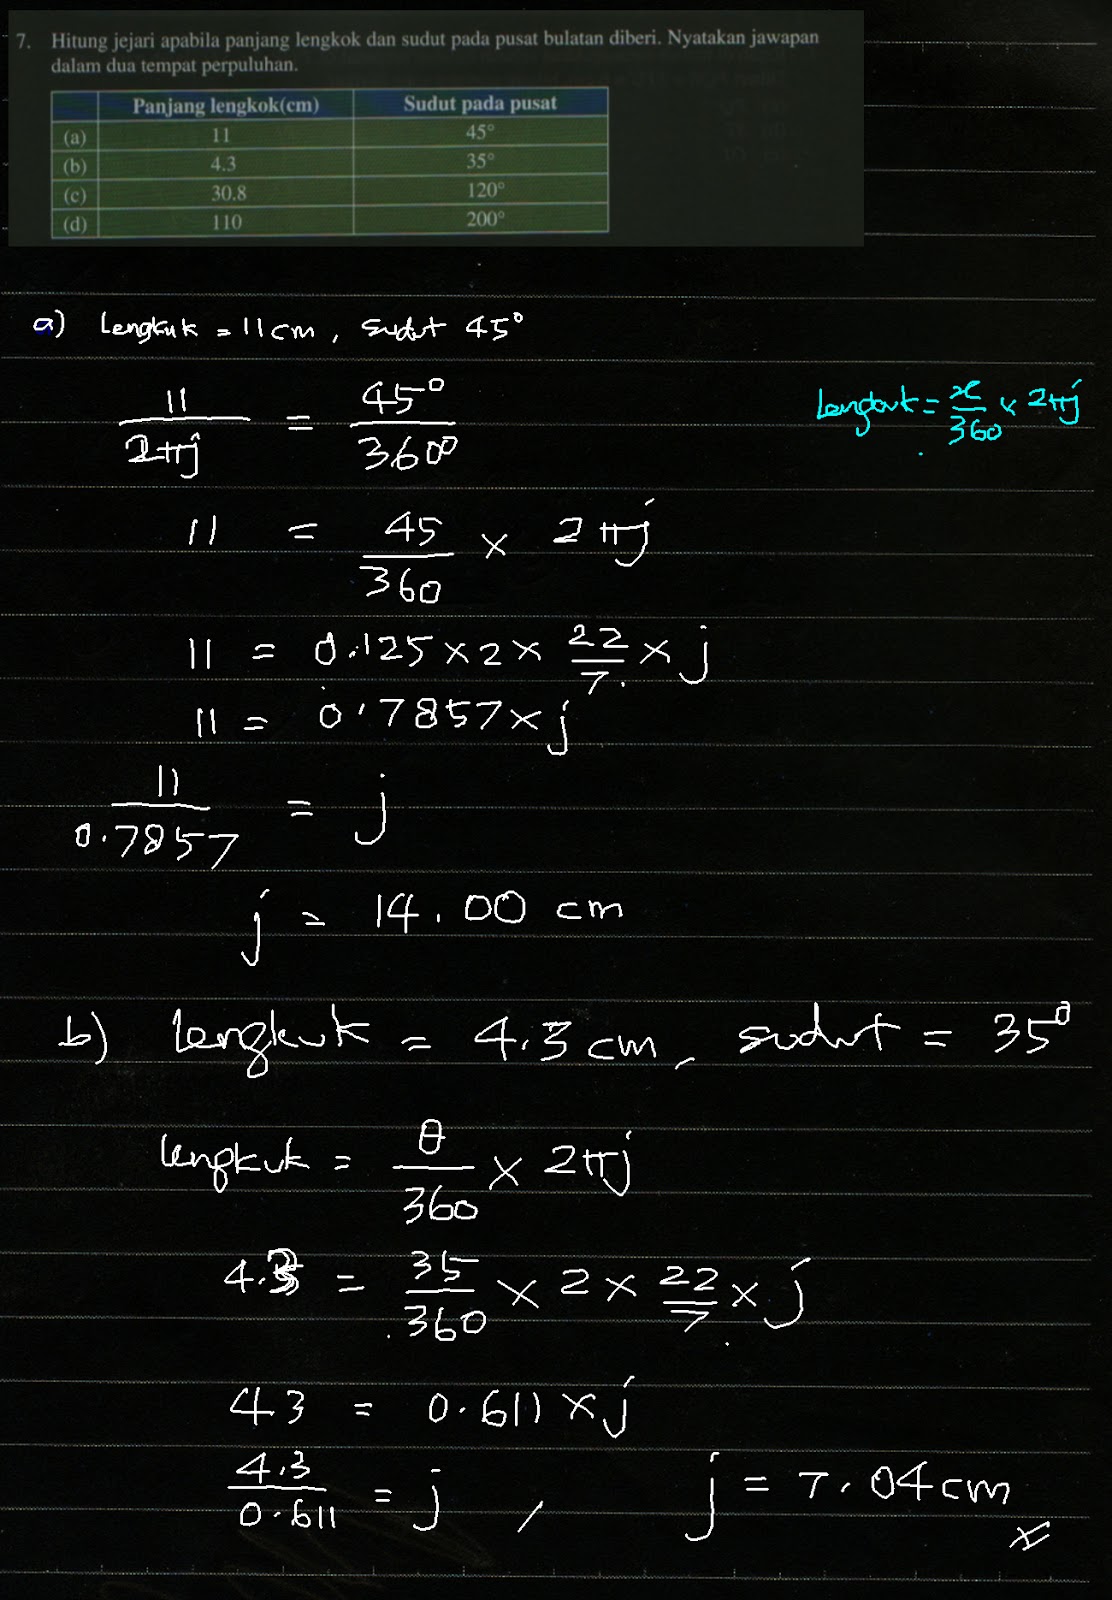 7. Hitung jejari apabila panjang lengkok dan sudut pada pusat bulatan diberi. Nyatakan jawapan
dalam dua tempat perpuluhan.
Panjang lengkok(cm) Sudut pada pusat
(a) 11 45°
(b) 4.3 35°
(c) 30.8 120°
(d) 110 200°
a) Lengkuk = 11 cm, sudut 45°
11/2πj = 45°/360°
Lengkuk = x/360 × 2πj
11 = 45/360 × 2πj
11 = 0.125 × 2 × 22/7 × j
11 = 0.7857 × j
11/0.7857 = j
j = 14.00 cm
b) lengkuk = 4.3 cm, sudut = 35°
lengkuk = θ/360 × 2πj
4.3 = 35/360 × 2 × 22/7 × j
43 = 0.611 × j
4.3/0.611 = j , j = 7.04 cm